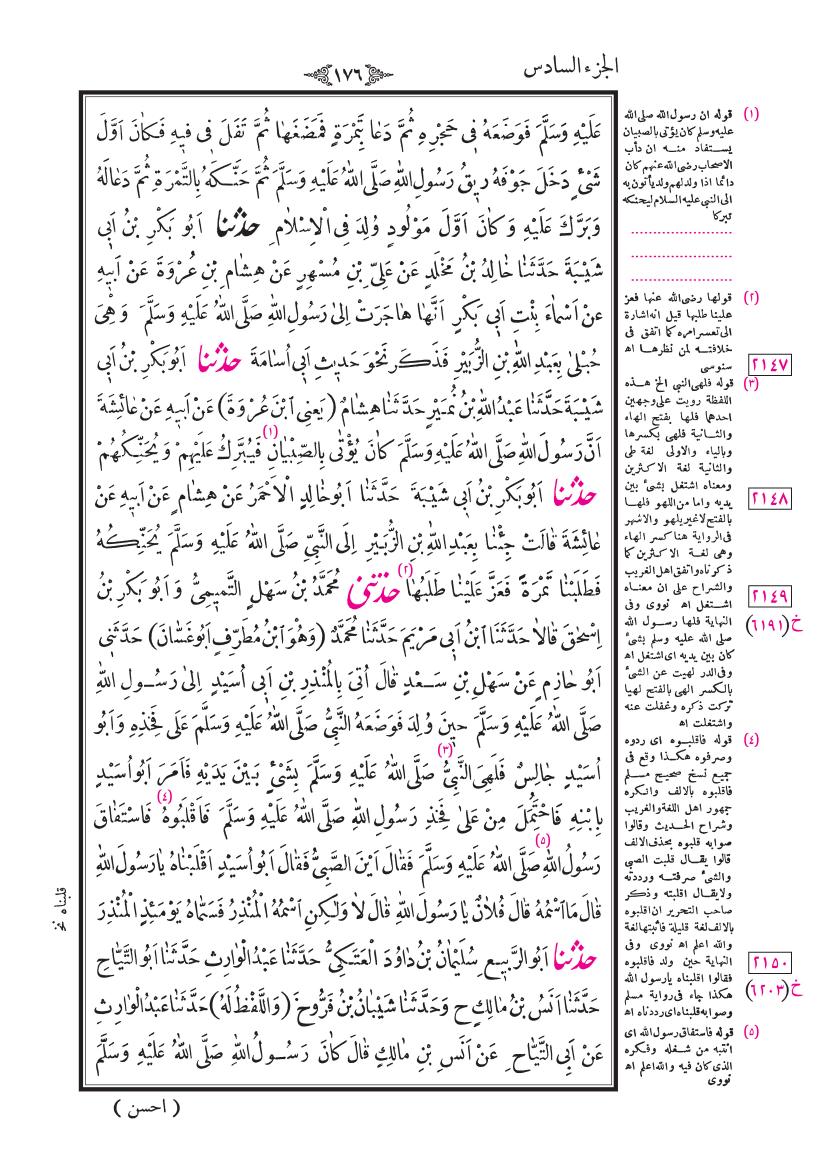 الجزء السادس
١٧٦
عَلَيْهِ وَسَلَّمَ فَوَضَعَهُ فِي حَجْرِهِ ثُمَّ دَعَا بِتَمْرَةٍ فَمَضَغَهَا ثُمَّ تَفَلَ فِي فِيهِ فَكَانَ اَوَّلَ
شَيْءٍ دَخَلَ جَوْفَهُ رِيقُ رَسُولِ اللهِ صَلَّى اللهُ عَلَيْهِ وَسَلَّمَ ثُمَّ حَنَّكَهُ بِالتَّمْرَةِ ثُمَّ دَعَا لَهُ
وَبَرَّكَ عَلَيْهِ وَكَانَ اَوَّلَ مَوْلُودٍ وُلِدَ فِي الْاِسْلَامِ حدثنا اَبُو بَكْرِ بْنُ اَبِي
شَيْبَةَ حَدَّثَنَا خَالِدُ بْنُ مَخْلَدٍ عَنْ عَلِيِّ بْنِ مُسْهِرٍ عَنْ هِشَامِ بْنِ عُرْوَةَ عَنْ اَبِيهِ
عَنْ اَسْمَاءَ بِنْتِ اَبِي بَكْرٍ اَنَّهَا هَاجَرَتْ اِلَى رَسُولِ اللهِ صَلَّى اللهُ عَلَيْهِ وَسَلَّمَ وَهْيَ
حُبْلَى بِعَبْدِ اللهِ بْنِ الزُّبَيْرِ فَذَكَرَ نَحْوَ حَدِيثِ اَبِي اُسَامَةَ حدثنا اَبُو بَكْرِ بْنُ اَبِي
شَيْبَةَ حَدَّثَنَا عَبْدُ اللهِ بْنُ نُمَيْرٍ حَدَّثَنَا هِشَامٌ (يَعْنِي ابْنَ عُرْوَةَ) عَنْ اَبِيهِ عَنْ عَائِشَةَ
اَنَّ رَسُولَ اللهِ صَلَّى اللهُ عَلَيْهِ وَسَلَّمَ كَانَ يُؤْتَى بِالصِّبْيَانِ (١) فَيُبَرِّكُ عَلَيْهِمْ وَيُحَنِّكُهُمْ
حدثنا اَبُو بَكْرِ بْنُ اَبِي شَيْبَةَ حَدَّثَنَا اَبُو خَالِدٍ الْاَحْمَرُ عَنْ هِشَامٍ عَنْ اَبِيهِ عَنْ
عَائِشَةَ قَالَتْ جِئْنَا بِعَبْدِ اللهِ بْنِ الزُّبَيْرِ اِلَى النَّبِيِّ صَلَّى اللهُ عَلَيْهِ وَسَلَّمَ يُحَنِّكُهُ
فَطَلَبْنَا تَمْرَةً فَعَزَّ عَلَيْنَا طَلَبُهَا (٢) حدثني مُحَمَّدُ بْنُ سَهْلٍ التَّمِيمِيُّ وَاَبُو بَكْرِ بْنُ
اِسْحَقَ قَالَا حَدَّثَنَا ابْنُ اَبِي مَرْيَمَ حَدَّثَنَا مُحَمَّدٌ (وَهُوَ ابْنُ مُطَرِّفٍ اَبُو غَسَّانَ) حَدَّثَنِي
اَبُو حَازِمٍ عَنْ سَهْلِ بْنِ سَعْدٍ قَالَ اُتِيَ بِالْمُنْذِرِ بْنِ اَبِي اُسَيْدٍ اِلَى رَسُولِ اللهِ
صَلَّى اللهُ عَلَيْهِ وَسَلَّمَ حِينَ وُلِدَ فَوَضَعَهُ النَّبِيُّ صَلَّى اللهُ عَلَيْهِ وَسَلَّمَ عَلَى فَخِذِهِ وَاَبُو
اُسَيْدٍ جَالِسٌ فَلَهِيَ النَّبِيُّ (٣) صَلَّى اللهُ عَلَيْهِ وَسَلَّمَ بِشَيْءٍ بَيْنَ يَدَيْهِ فَاَمَرَ اَبُو اُسَيْدٍ
بِابْنِهِ فَاحْتُمِلَ مِنْ عَلَى فَخِذِ رَسُولِ اللهِ صَلَّى اللهُ عَلَيْهِ وَسَلَّمَ فَاَقْلَبُوهُ (٤) فَاسْتَفَاقَ
رَسُولُ اللهِ (٥) صَلَّى اللهُ عَلَيْهِ وَسَلَّمَ فَقَالَ اَيْنَ الصَّبِيُّ فَقَالَ اَبُو اُسَيْدٍ اَقْلَبْنَاهُ يَا رَسُولَ اللهِ
قَالَ مَا اسْمُهُ قَالَ فُلَانٌ يَا رَسُولَ اللهِ قَالَ لَا وَلَكِنِ اسْمُهُ الْمُنْذِرُ فَسَمَّاهُ يَوْمَئِذٍ الْمُنْذِرَ
حدثنا اَبُو الرَّبِيعِ سُلَيْمَانُ بْنُ دَاوُدَ الْعَتَكِيُّ حَدَّثَنَا عَبْدُ الْوَارِثِ حَدَّثَنَا اَبُو التَّيَّاحِ
حَدَّثَنَا اَنَسُ بْنُ مَالِكٍ ح وَحَدَّثَنَا شَيْبَانُ بْنُ فَرُّوخَ (وَاللَّفْظُ لَهُ) حَدَّثَنَا عَبْدُ الْوَارِثِ
عَنْ اَبِي التَّيَّاحِ عَنْ اَنَسِ بْنِ مَالِكٍ قَالَ كَانَ رَسُولُ اللهِ صَلَّى اللهُ عَلَيْهِ وَسَلَّمَ
( احسن )
قلبناه نخ
(١) قوله ان رسول الله صلى الله
عليه وسلم كان يؤتى بالصبيان
يستفاد منه ان دأب
الاصحاب رضى الله عنهم كان
دائما اذا ولد لهم ولد يأتون به
الى النبي عليه السلام ليحنكه
تبركا
(٢) قولها رضى الله عنها فعز
علينا طلبها قيل انه اشارة
الى تعسر امره كما اتفق فى
خلافته لمن نظرها اه
سنوسى
(٣) قوله فلهى النبي الخ هذه
اللفظة رويت على وجهين
احدهما فلها بفتح الهاء
والثانية فلهى بكسرها
وبالياء والاولى لغة طى
والثانية لغة الاكثرين
ومعناه اشتغل بشئ بين
يديه واما من اللهو فلها
بالفتح لاغير يلهو والاشهر
فى الرواية هنا كسر الهاء
وهى لغة الاكثرين كما
ذكرناه واتفق اهل الغريب
والشراح على ان معناه
اشتغل اه نووى وفى
النهاية فلها رسول الله
صلى الله عليه وسلم بشئ
كان بين يديه اى اشتغل اه
وفى الدر لهيت عن الشئ
بالكسر الهى بالفتح لهيا
تركت ذكره وغفلت عنه
واشتغلت اه
(٤) قوله فاقلبوه اى ردوه
وصرفوه هكذا وقع فى
جميع نسخ صحيح مسلم
فاقلبوه بالالف وانكره
جمهور اهل اللغة والغريب
وشراح الحديث وقالوا
صوابه قلبوه بحذف الالف
قالوا يقال قلبت الصبي
والشئ صرفته ورددته
ولا يقال اقلبته وذكر
صاحب التحرير ان اقلبوه
بالالف لغة قليلة فاثبتها لغة
والله اعلم اه نووى وفى
النهاية حين ولد فاقلبوه
فقالوا اقلبناه يا رسول الله
هكذا جاء فى رواية مسلم
وصوابه قلبناه اى رددناه اه
(٥) قوله فاستفاق رسول الله اى
انتبه من شغله وفكره
الذى كان فيه والله اعلم اه
نووى
٢١٤٧
٢١٤٨
٢١٤٩
خ (٦١٩١)
٢١٥٠
خ (٦٢٠٣)